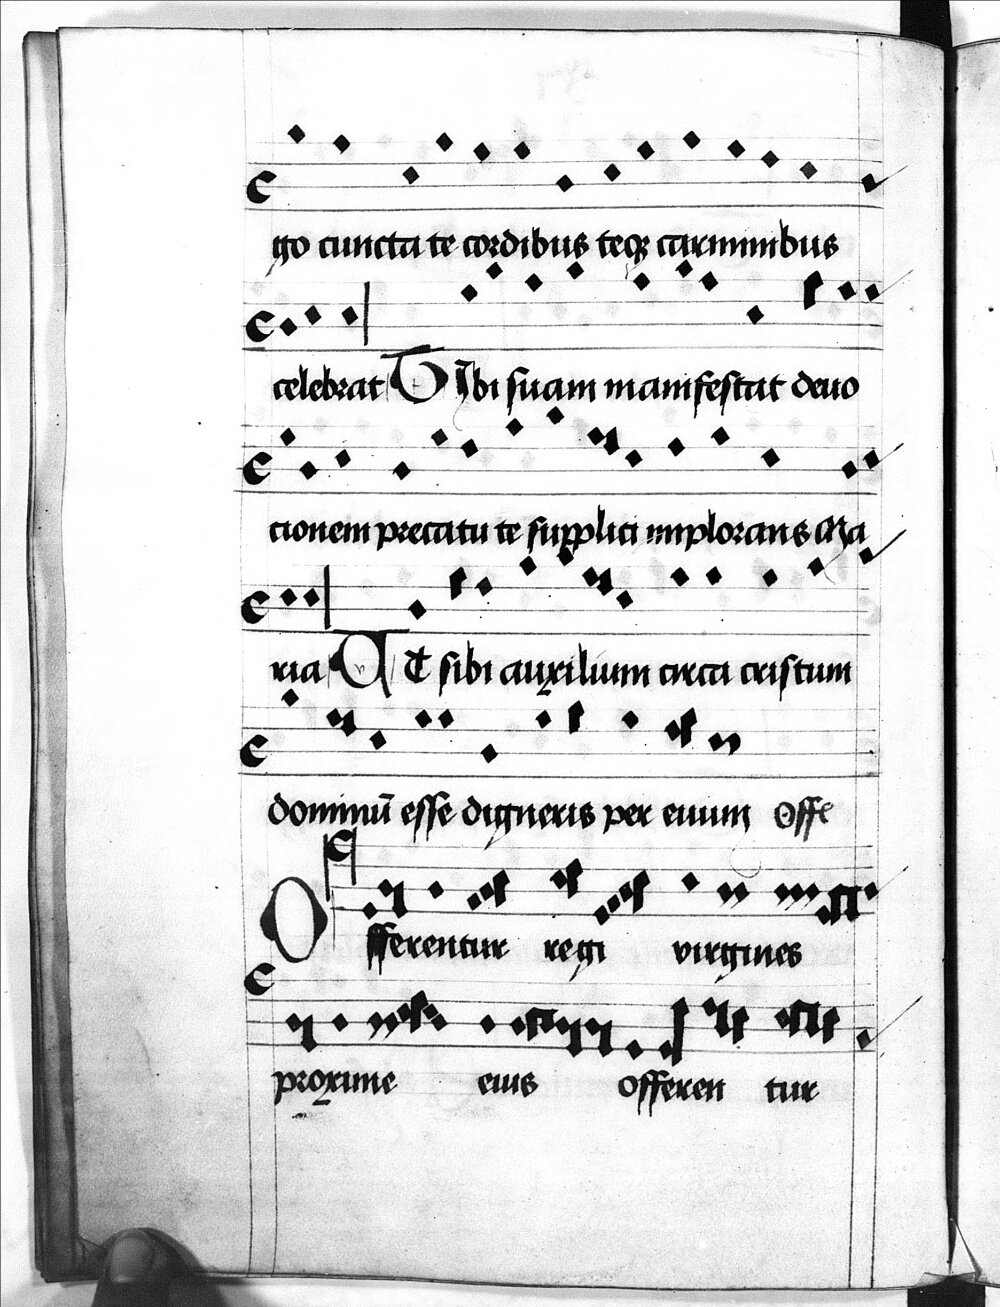 go cuncta te cordibus teqꝫ carminibus
celebrat Tibi suam manifestat deuo
cionem precatu te supplici implorans Ma
ria Ut sibi auxilium circa cristum
dominū esse digneris per euum Offe
Offerentur regi virgines
proxime eius offeren tur